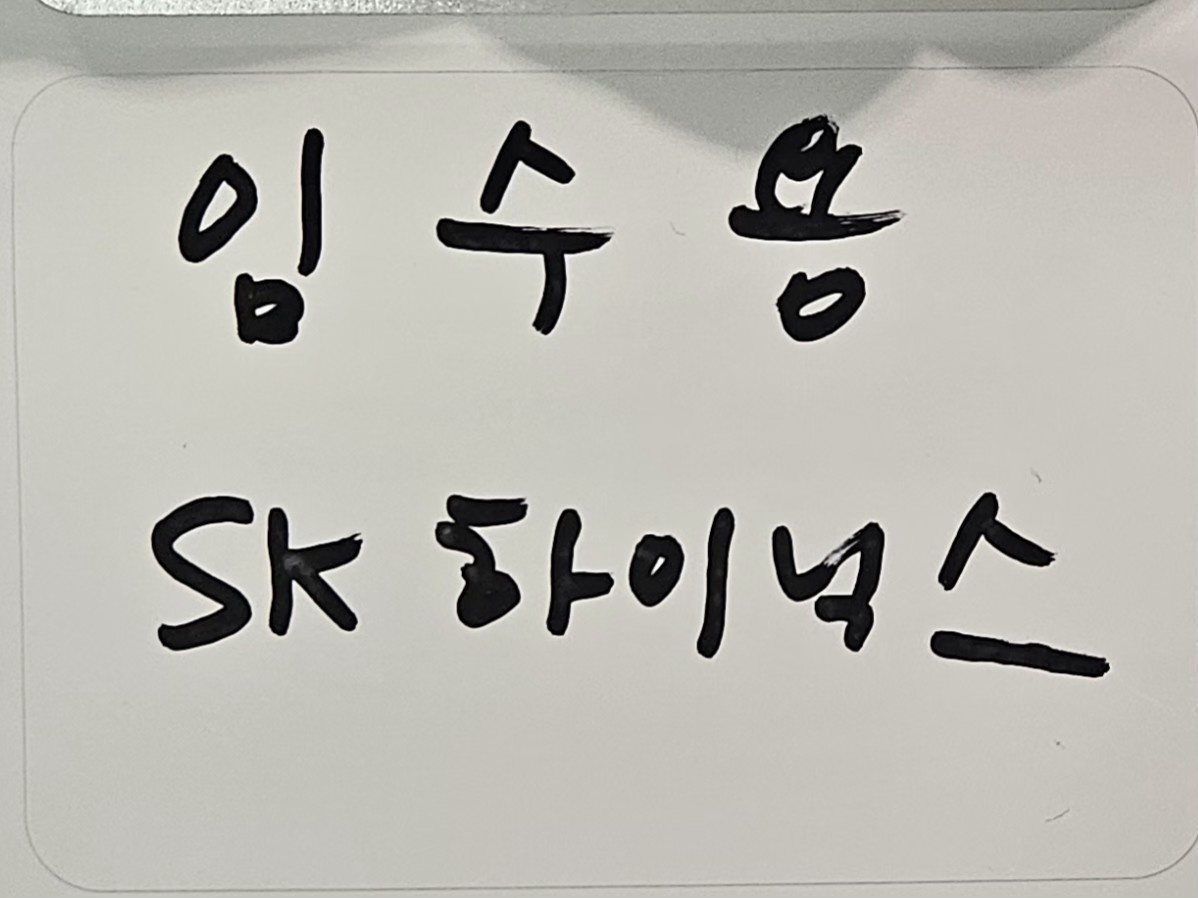 임수용
SK 하이닉스